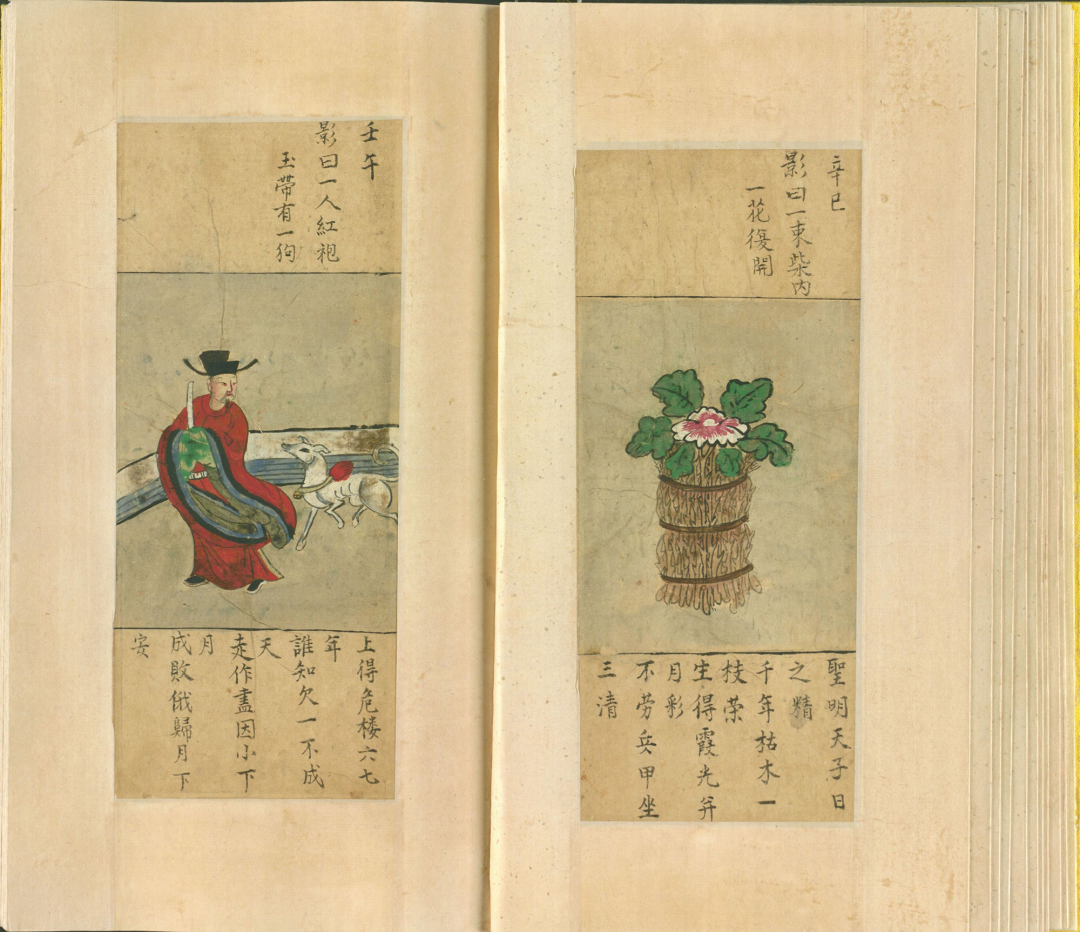 辛巳
影曰一束柴内
一花復開
聖明天子日
之精
千年枯木一
枝荣
生得霞光并
月彩
不劳兵甲坐
三清
壬午
影曰一人紅袍
玉帶有一狗
上得危楼六七
年
誰知欠一不成
天
走作盡因小下
月
成敗俄歸月下
安